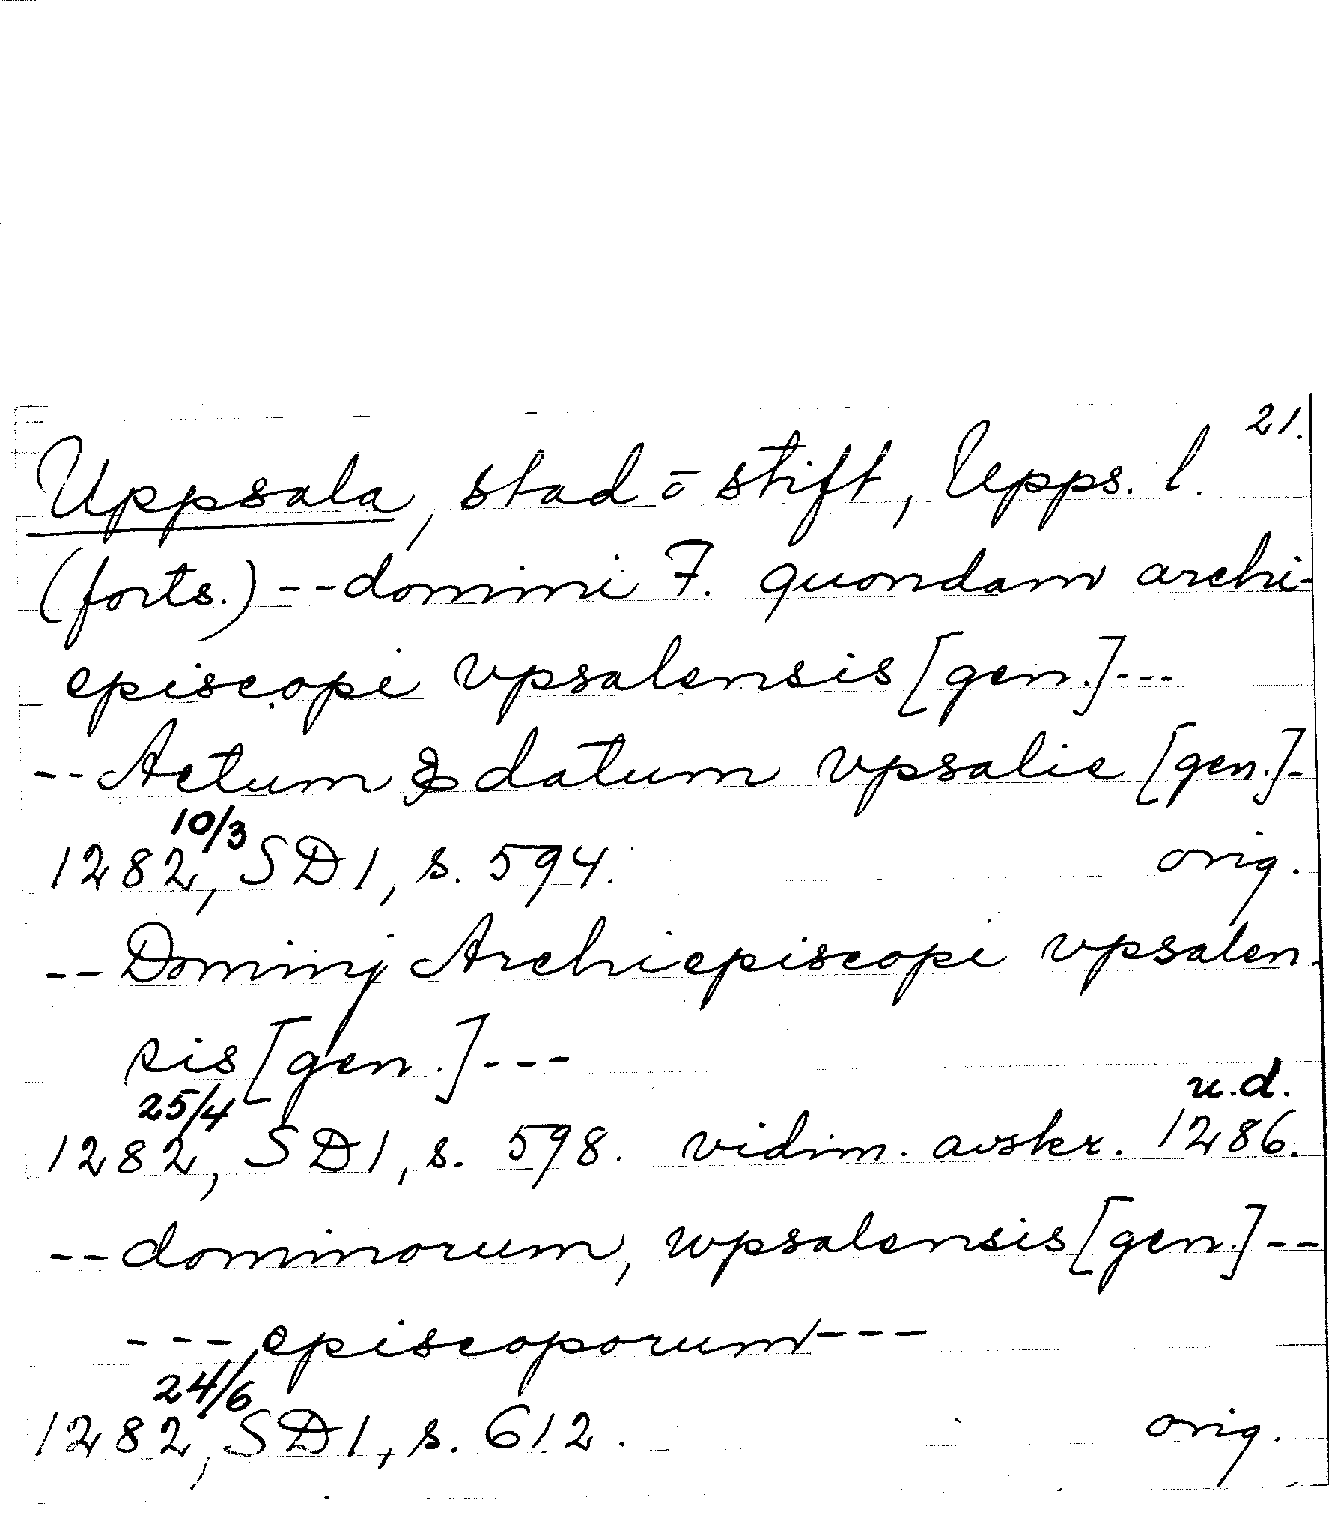 21.
Uppsala, stad o stift, Upps. l.
(forts.) --domini F. quondam archi-
episcopi vpsalensis [gen.]---
--Actum & datum vpsalie [gen.]-
1282 10/3, SD 1, s. 594. orig.
--Dominj Archiepiscopi vpsalen-
sis [gen.]---
u.d.
1282 25/4, SD 1, s. 598. vidim. avskr. 1286.
--dominorum, wpsalensis [gen.]--
---episcoporum---
1282 24/6, SD 1, s. 612. orig.